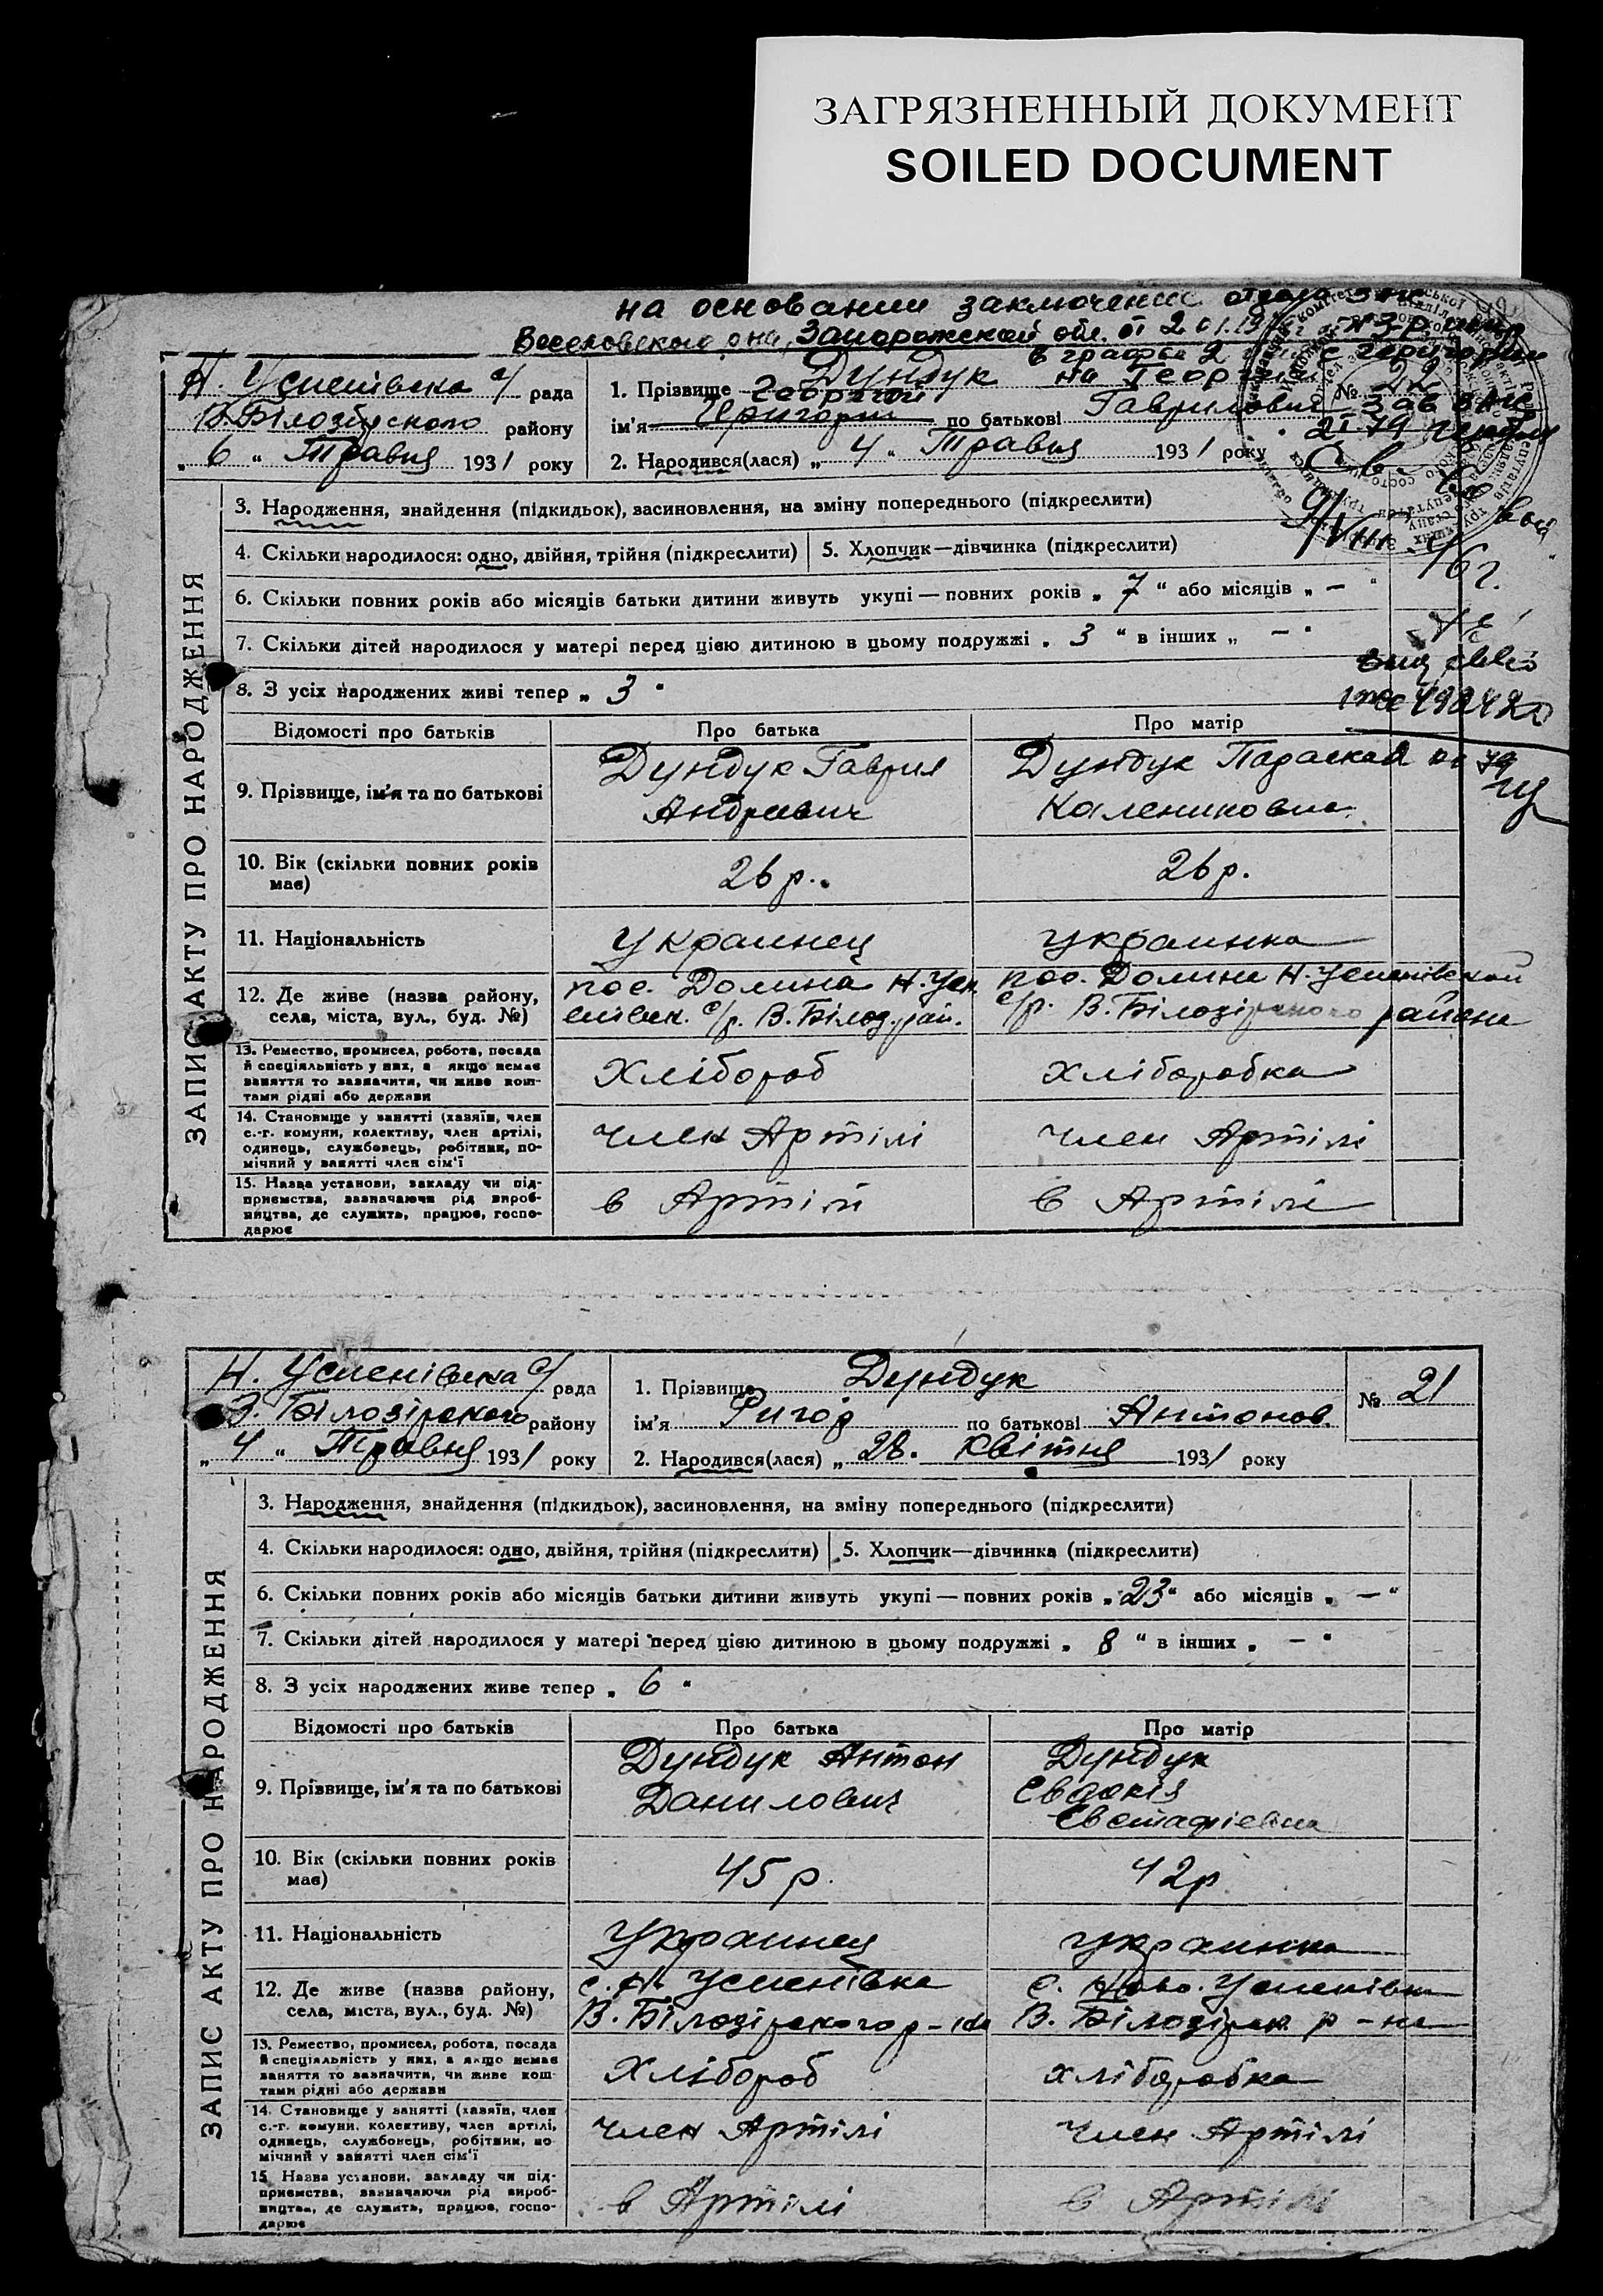 ЗАГРЯЗНЕННЫЙ ДОКУМЕНТ
SOILED DOCUMENT
на основании заключение отдела загс
Веселовского она, Запорожской обл. от
в графе 2 с Григория
на Георгий
Н. Успенівска с/ рада
В. Білозірского району
„ 6 “ Травня 1931 року
1. Прізвище Дундук
Георгий
ім'я Григорий по батькові Гаврилович
2. Народився(лася) „ 4 “ Травня 1931 року
№ 22
Зав загс
9/VIII 76 г.
492420
ЗАПИС АКТУ ПРО НАРОДЖЕННЯ
3. Народження, знайдення (підкидьок), засиновлення, на зміну попереднього (підкреслити)
4. Скільки народилося: одно, двійня, трійня (підкреслити)
5. Хлопчик—дівчинка (підкреслити)
6. Скільки повних років або місяців батьки дитини живуть укупі — повних років „ 7 “ або місяців „ — “
7. Скільки дітей народилося у матері перед цією дитиною в цьому подружжі „ 3 “ в інших „ — “
8. З усіх народжених живі тепер „ 3 “
Відомості про батьків Про батька Про матір
9. Прізвище, ім'я та по батькові
Дундук Гаврил
Андреевич
Дундук Параскева
Калениковна
10. Вік (скільки повних років
має)
26 р.
26 р.
11. Національність
Украинец
украинка
12. Де живе (назва району,
села, міста, вул., буд. №)
пос. Долина Н. Усп
енівск. с/р. В. Білоз. рай.
пос. Долина Н. Успенівской
с/р. В. Білозірского района
13. Ремество, промисел, робота, посада
й спеціяльність у них, а якщо немає
заняття то зазначити, чи живе кош-
тами рідні або держави
Хлібороб
хліборобка
14. Становище у занятті (хазяїн, член
с.-г. комуни, колективу, член артілі,
одинець, службовець, робітник, по-
мічний у занятті член сім'ї
член Артілі
член Артілі
15. Назва установи, закладу чи під-
приємства, зазначаючи рід вироб-
ництва, де служить, працює, госпо-
дарює
в Артілі
в Артілі
Н. Успенівска с/ рада
В. Білозірского району
„ 4 “ Травня 1931 року
1. Прізвище Дундук
ім'я Ригор по батькові Антонов.
2. Народився(лася) „ 28. Квітня 1931 року
№ 21
ЗАПИС АКТУ ПРО НАРОДЖЕННЯ
3. Народження, знайдення (підкидьок), засиновлення, на зміну попереднього (підкреслити)
4. Скільки народилося: одно, двійня, трійня (підкреслити)
5. Хлопчик—дівчинка (підкреслити)
6. Скільки повних років або місяців батьки дитини живуть укупі — повних років „ 23 “ або місяців „ — “
7. Скільки дітей народилося у матері перед цією дитиною в цьому подружжі „ 8 “ в інших „ — “
8. З усіх народжених живе тепер „ 6 “
Відомості про батьків Про батька Про матір
9. Прізвище, ім'я та по батькові
Дундук Антон
Данилович
Дундук
Евдокія
Евстафіевна
10. Вік (скільки повних років
має)
45 р.
42 р
11. Національність
Украинец
украинка
12. Де живе (назва району,
села, міста, вул., буд. №)
с. Н. Успенівка
В. Білозірского р-на
с. Ново. Успенівка
В. Білозірск. р-на
13. Ремество, промисел, робота, посада
й спеціяльність у них, а якщо немає
заняття то зазначити, чи живе кош-
тами рідні або держави
Хлібороб
хліборобка
14. Становище у занятті (хазяїн, член
с.-г. комуни, колективу, член артілі,
одинець, службовець, робітник, по-
мічний у занятті член сім'ї
член Артілі
член Артілі
15. Назва установи, закладу чи під-
приємства, зазначаючи рід вироб-
ництва, де служить, працює, госпо-
дарює
в Артілі
в Артілі